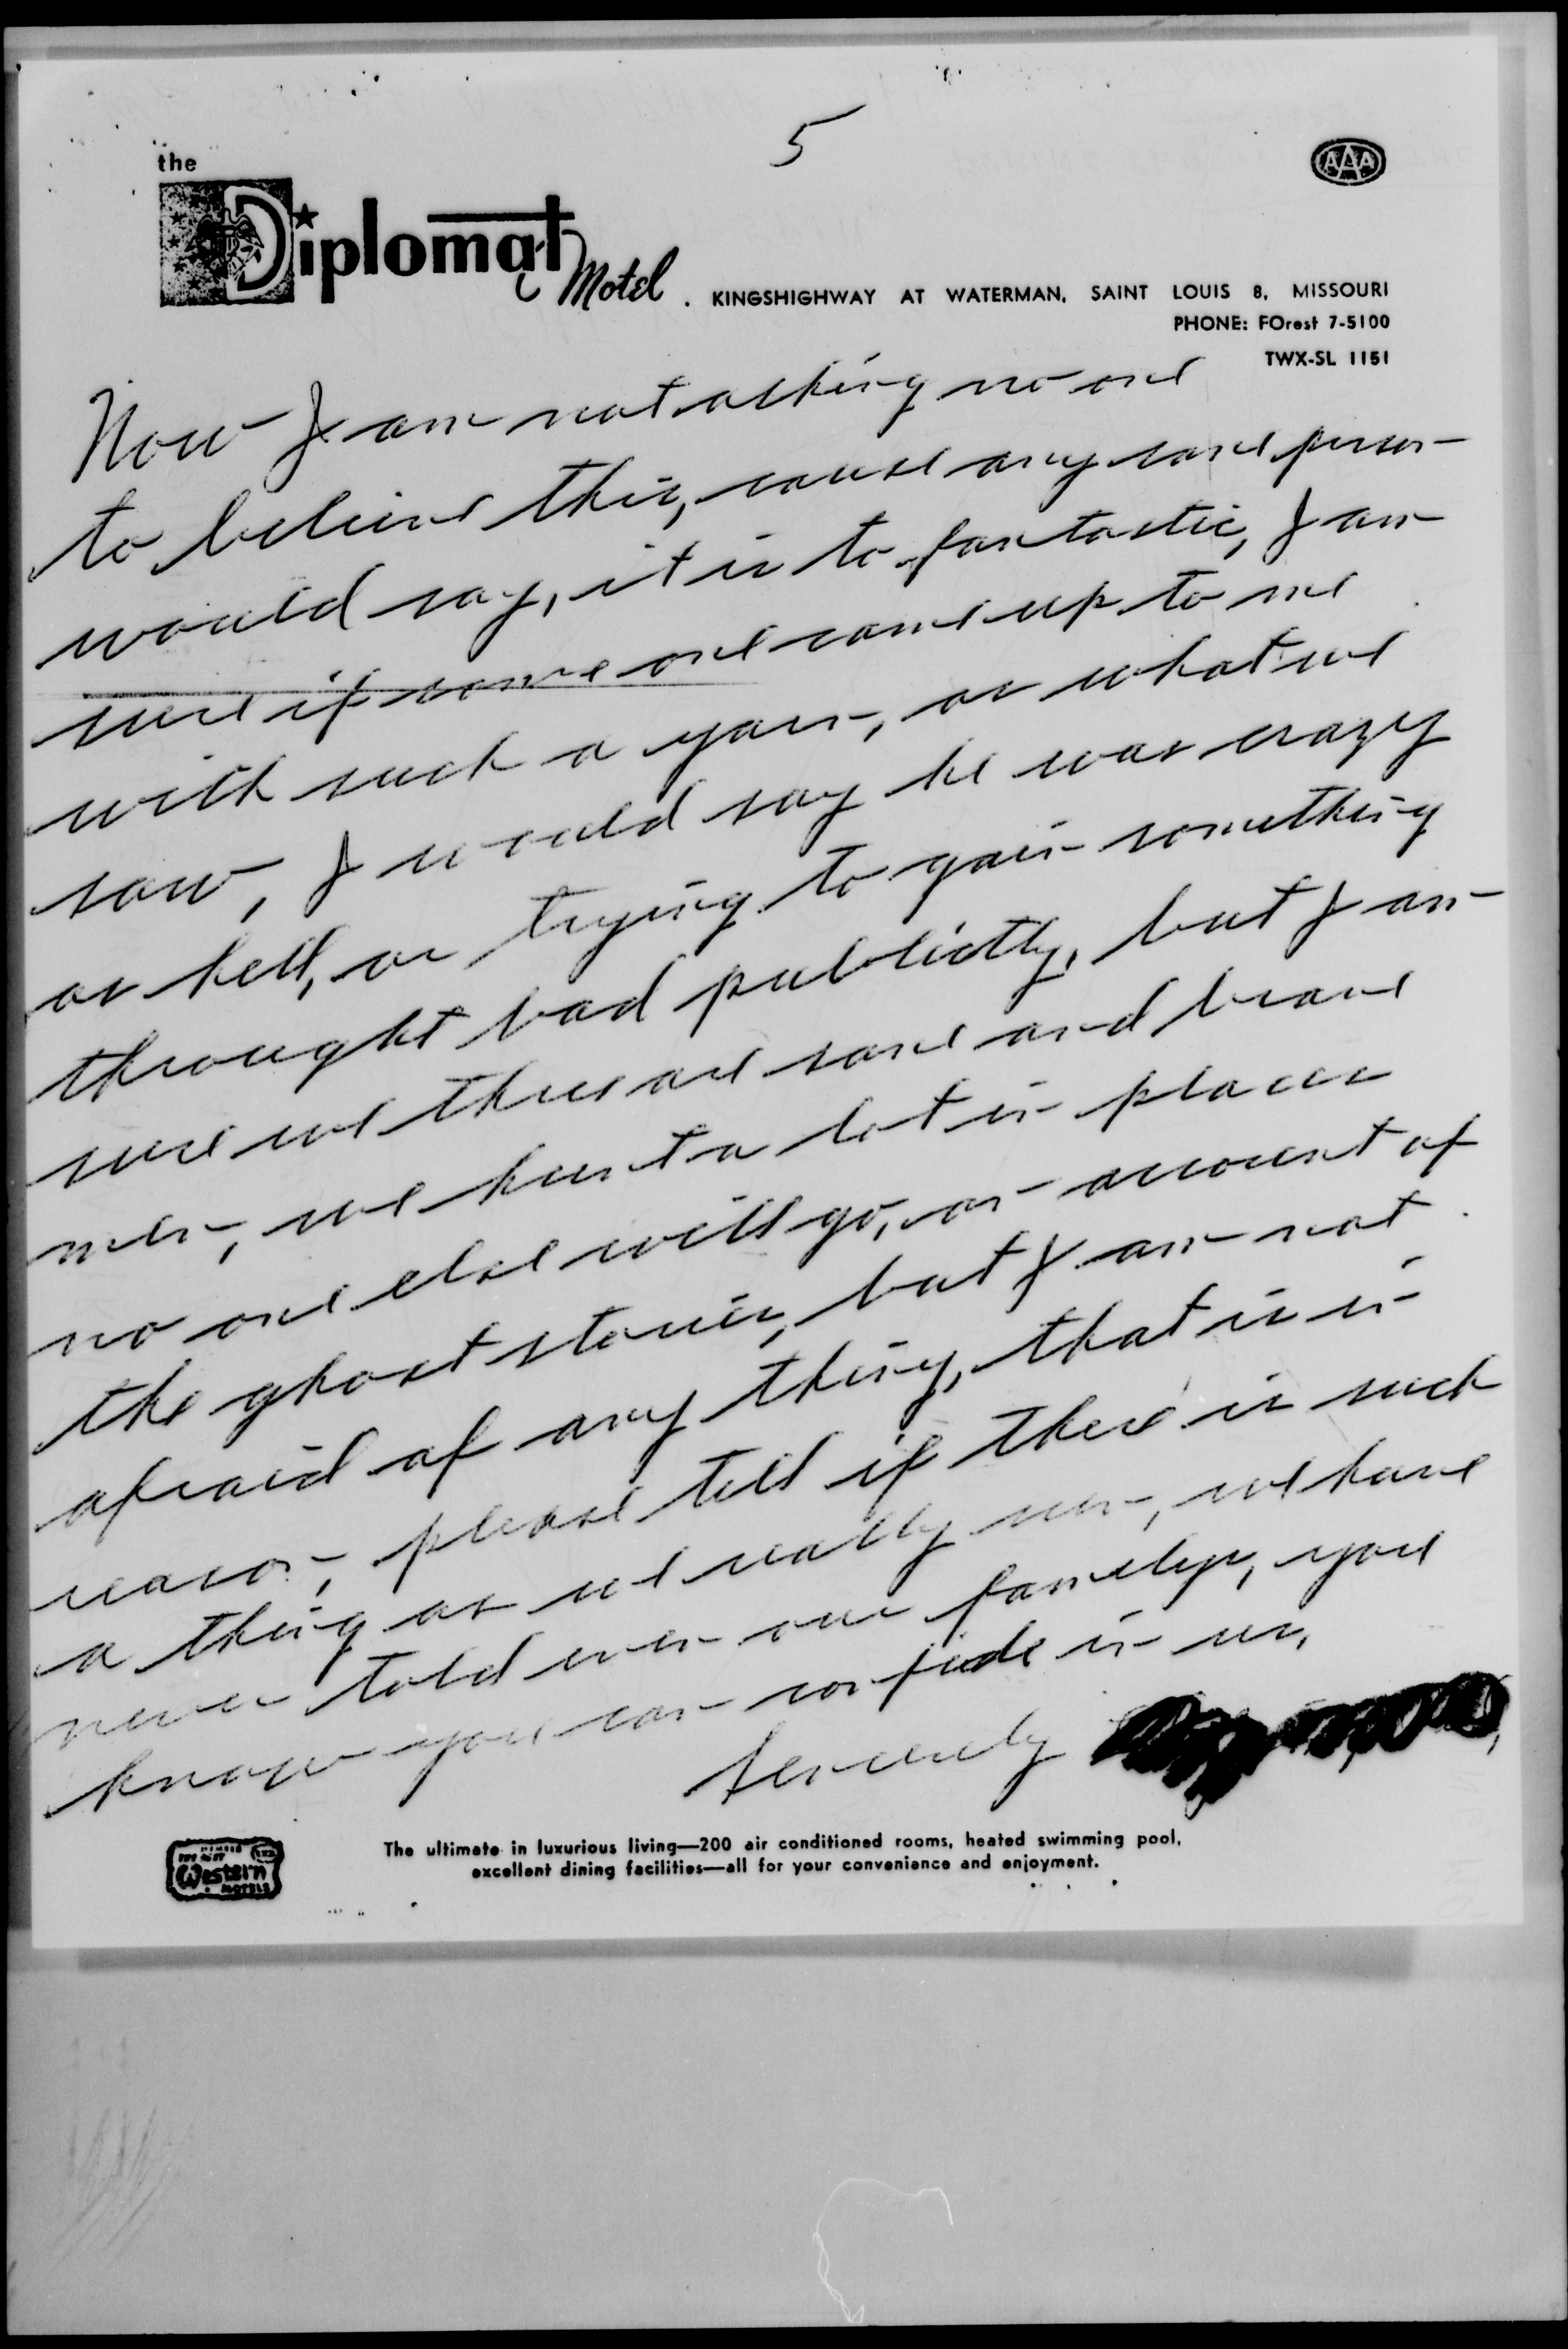 5
the
Diplomat Motel. KINGSHIGHWAY AT WATERMAN, SAINT LOUIS 8, MISSOURI
AAA
PHONE: FOrest 7-5100
TWX-SL 1151
Now I am not asking no one
to believe this, cause any sane person
would say, it is to fantastic, I am
sure if some one came up to me
with such a yarn, as what we
saw, I would say he was crazy
as hell, or trying to gain something
throught bad publictly, but I am
sure we three are sane and brave
men, we hunt a lot in places
no one else will go, on account of
the ghost stories, but I am not
afraid of any thing, that is in
reason, please tell if there is such
a thing as we really seen, we have
never told even our familys, you
know you can confide in us,
Sencerely
MEMBER
Best Western MOTELS
The ultimate in luxurious living—200 air conditioned rooms, heated swimming pool,
excellent dining facilities—all for your convenience and enjoyment.